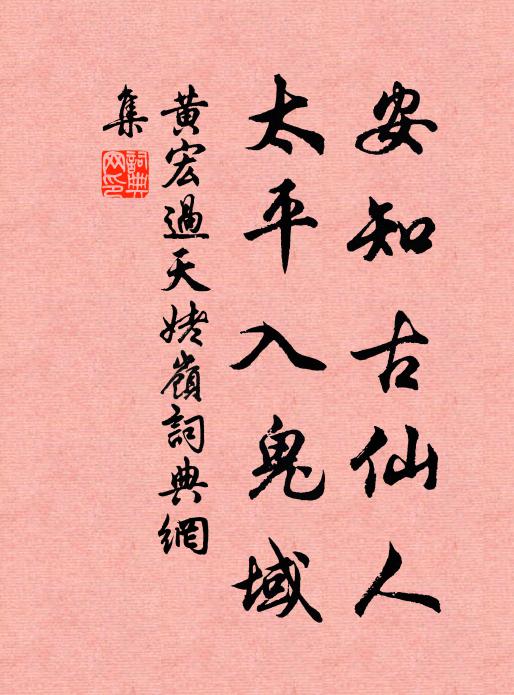 安知古仙人
太平入鬼域
黄宏過天姥嶺詞典網
集
詞典
网印